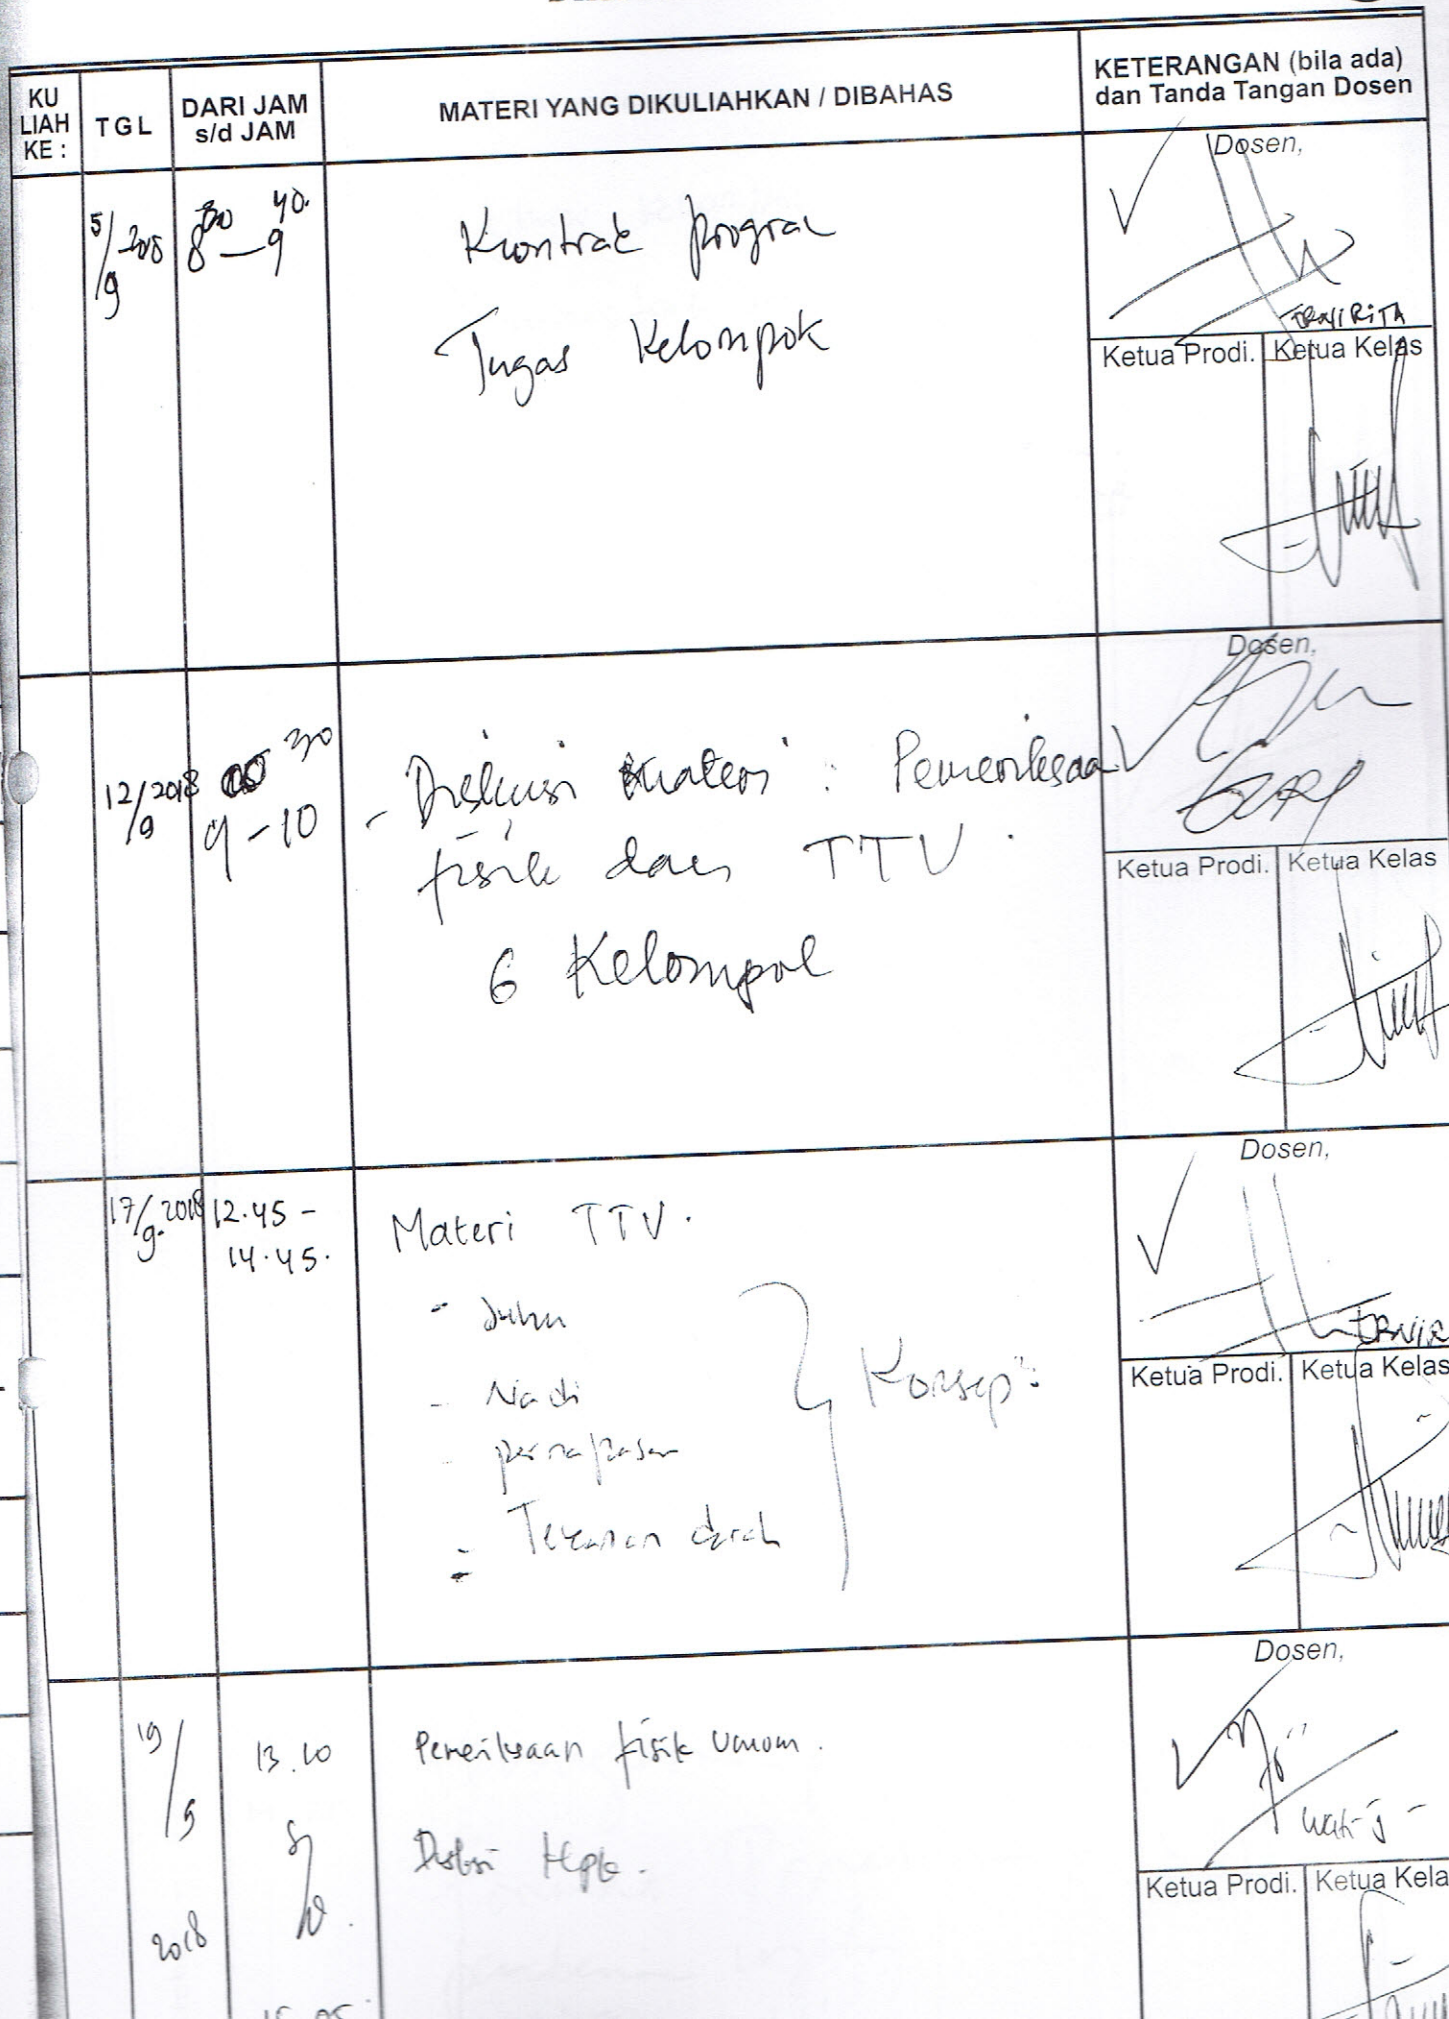 KU LIAH KE :
TGL
DARI JAM s/d JAM
MATERI YANG DIKULIAHKAN / DIBAHAS
KETERANGAN (bila ada)
dan Tanda Tangan Dosen
5/9 2018
8 30 – 9 40.
Kontrak program
Tugas Kelompok
Dosen,
ERNI RITA
Ketua Prodi.
Ketua Kelas
12/9 2018
9 – 10 30
- Diskusi materi : Pemeriksaan
fisik dan TTV.
6 Kelompok
Dosen,
Ketua Prodi.
Ketua Kelas
17/9. 2018
12.45 –
14.45.
Materi TTV.
- Suhu
- Nadi
- pernapasan
- Tekanan darah
Konsep
Dosen,
ERNI R
Ketua Prodi.
Ketua Kelas
19/9 2018
13.10
s/d
Pemeriksaan fisik Umum.
Dosen,
Ketua Prodi.
Ketua Kela